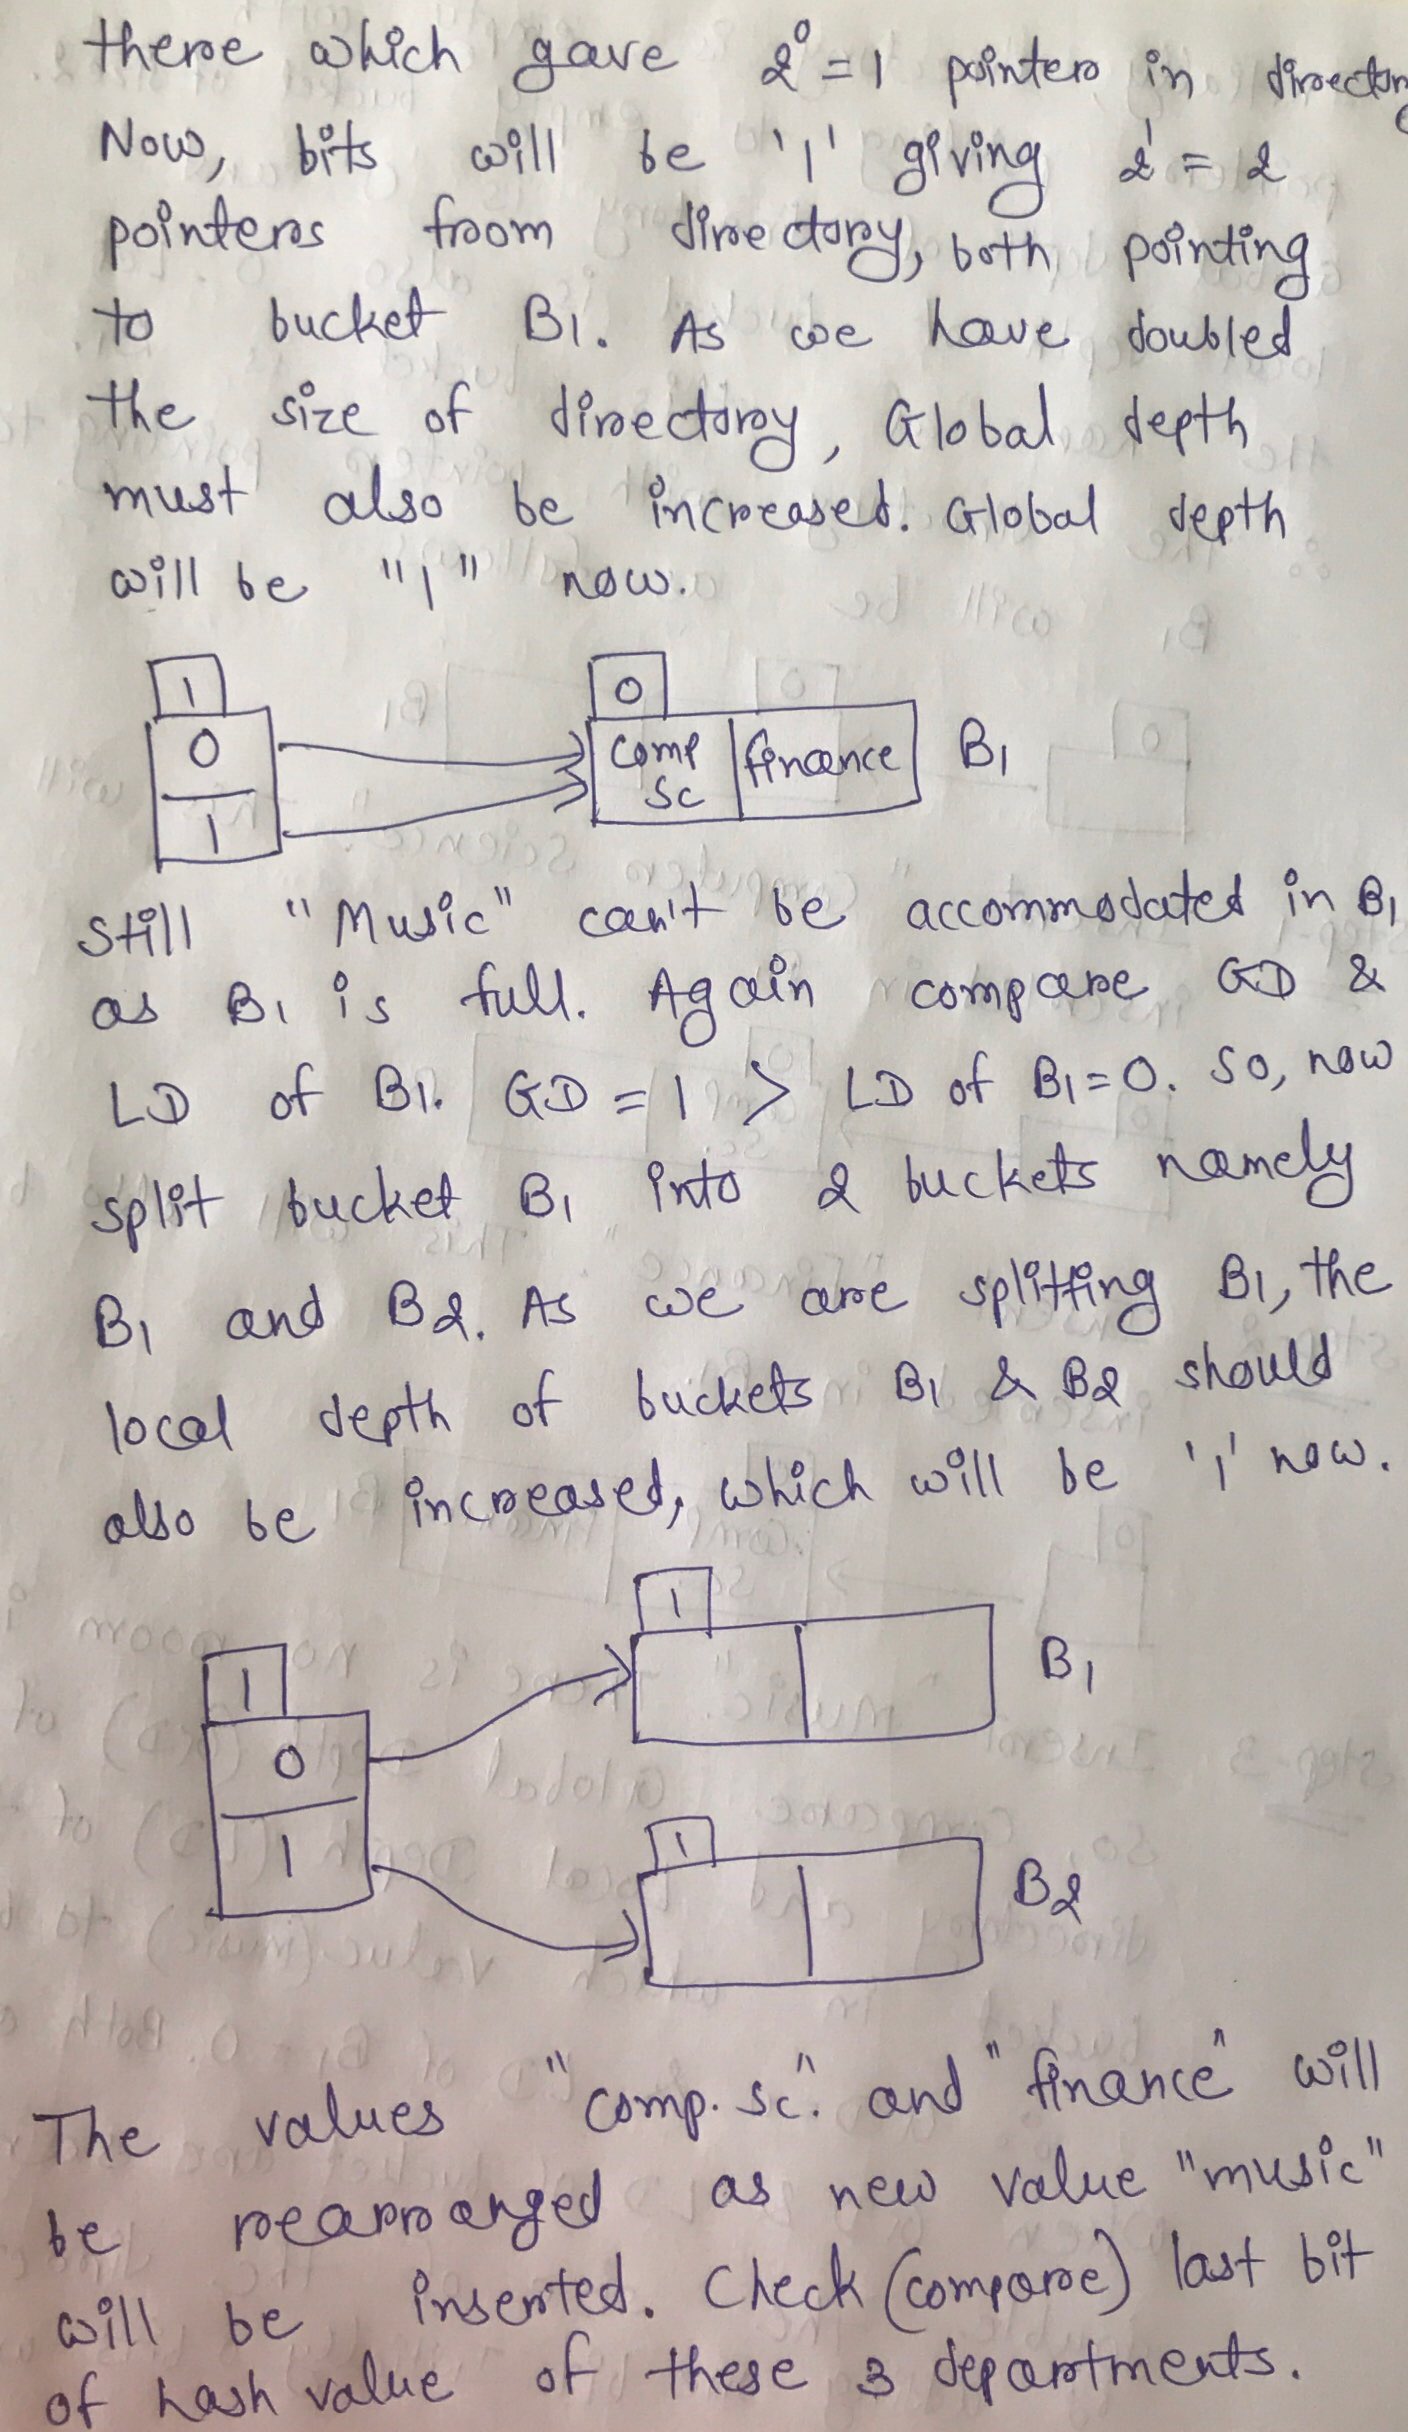 there which gave 2⁰ = 1 pointer in directory
Now, bits will be '1' giving 2¹ = 2
pointers from directory, both pointing
to bucket B1. As we have doubled
the size of directory, Global depth
must also be increased. Global depth
will be "1" now.
1
0
0
1
Comp Sc
finance
B1
Still "Music" can't be accommodated in B1
as B1 is full. Again compare GD &
LD of B1. GD = 1 > LD of B1 = 0. So, now
split bucket B1 into 2 buckets namely
B1 and B2. As we are splitting B1, the
local depth of buckets B1 & B2 should
also be increased, which will be '1' now.
1
B1
1
0
1
1
B2
The values "Comp. Sc." and "finance" will
be rearranged as new value "music"
will be inserted. Check (compare) last bit
of hash value of these 3 departments.